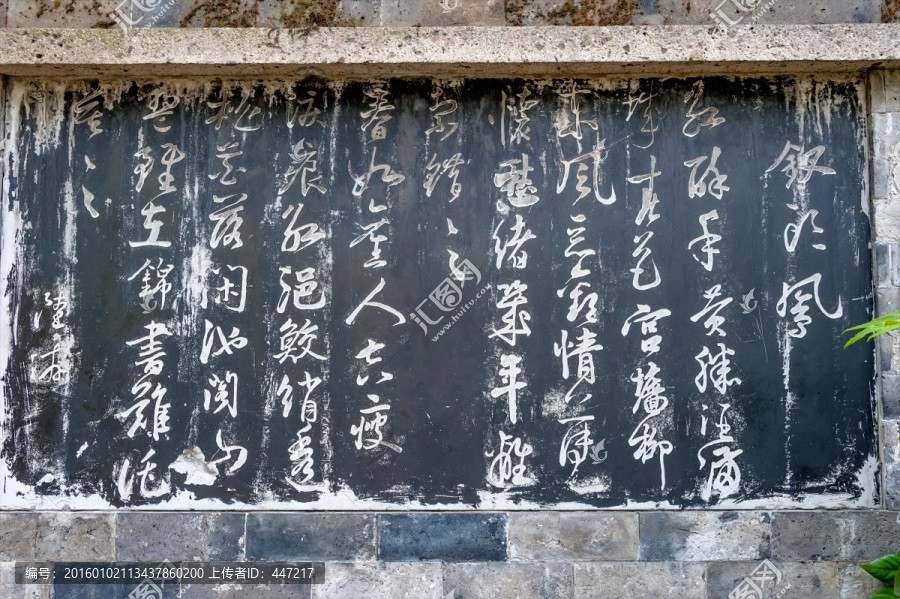 釵头鳳
红酥手黄縢酒满
城春色宫墙柳
東風恶歡情薄一
懷愁緒幾年離
索錯〻〻
春如舊人空瘦
泪痕红浥鲛綃透
桃花落闲池阁山
盟雖在錦書難托
莫〻〻
陸游
汇图网
www.huitu.com
编号：20160102113437860200 上传者ID：447217